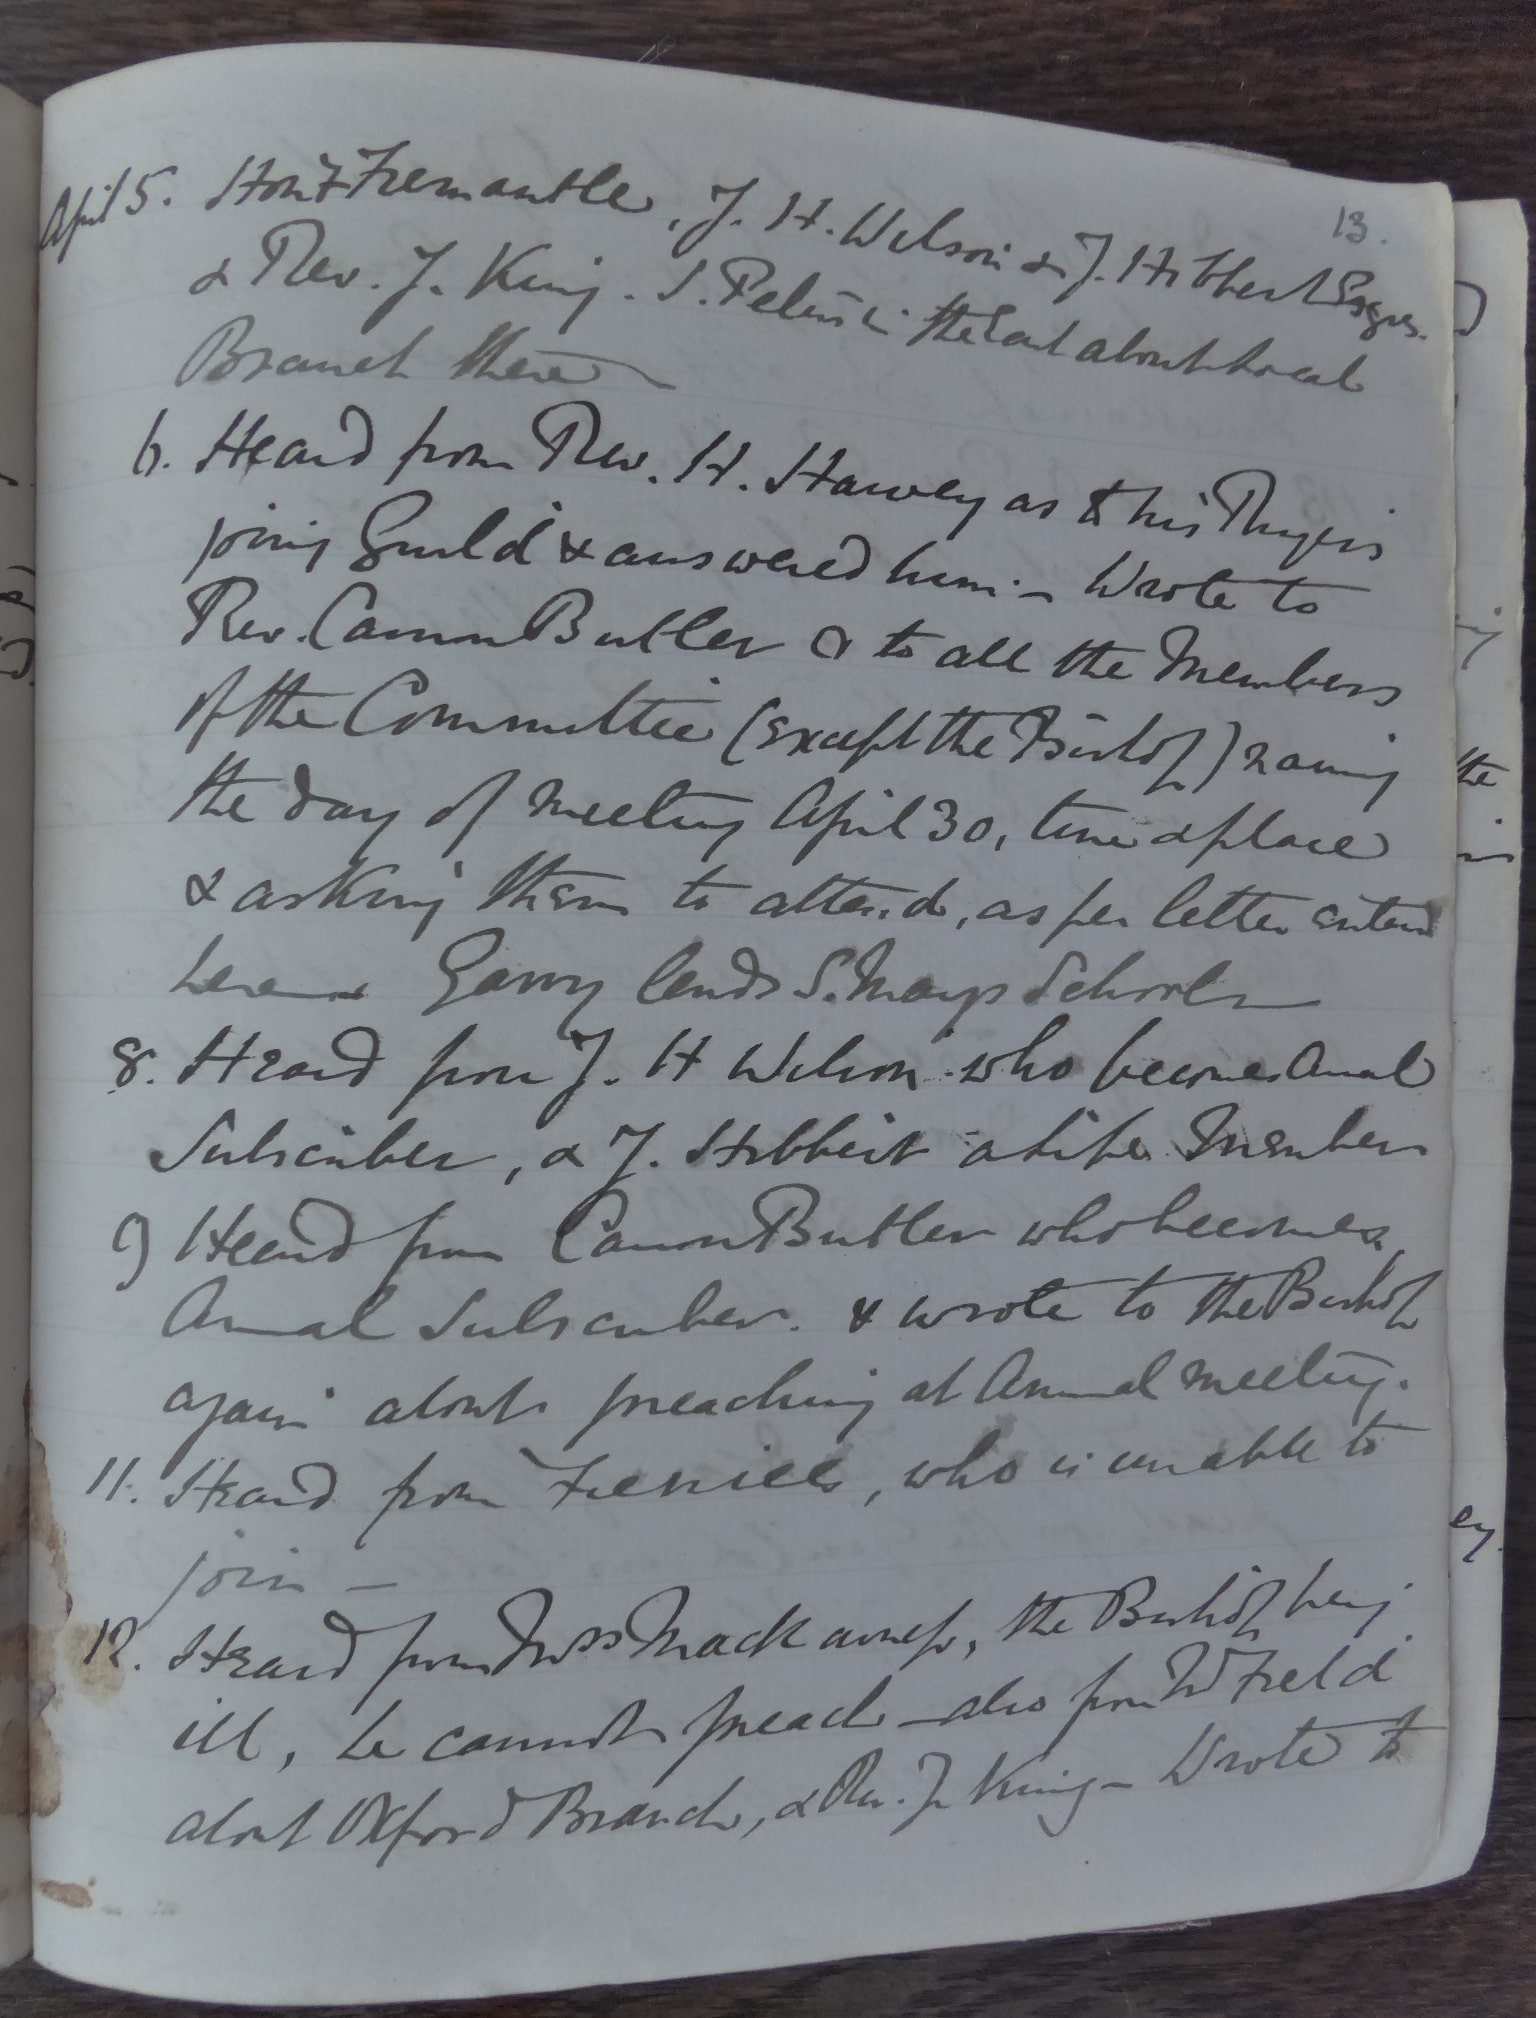 13.
April 5. Hon. F. Fremantle, J. H. Wilson & J. Hibbert Esqres.
& Rev. J. King. S. Peter's in the East about Local
Branch there —
6. Heard from Rev. H. Harvey as to his Ringers
joining Guild & answered him. — Wrote to
Rev. Canon Butler & to all the Members
of the Committee (except the Bishop) naming
the day of meeting April 30, time & place
& asking them to attend, as per letter entered
here — Garry lends S. Mary's Schools —
8. Heard from J. H Wilson who becomes Annual
Subscriber, & J. Hibbert a life Member
9 Heard from Canon Butler who becomes
Annual Subscriber. & wrote to the Bishop
again about preaching at Annual Meeting.
11. Heard from, who is unable to
join —
12. Heard from Miss Mackarness, the Bishop being
ill, he cannot preach — also from W Field
about Oxford Branch, & Rev. J. King — Wrote to
the
ey.